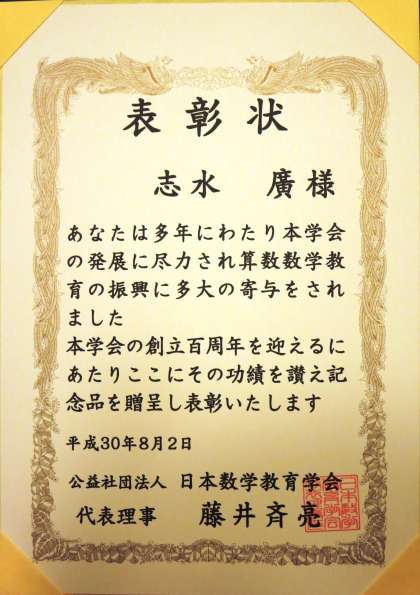 表彰状
志水 廣様
あなたは多年にわたり本学会
の発展に尽力され算数数学教
育の振興に多大の寄与をされ
ました
本学会の創立百周年を迎えるに
あたりここにその功績を讃え記
念品を贈呈し表彰いたします
平成30年8月2日
公益社団法人 日本数学教育学会
代表理事 藤井斉亮